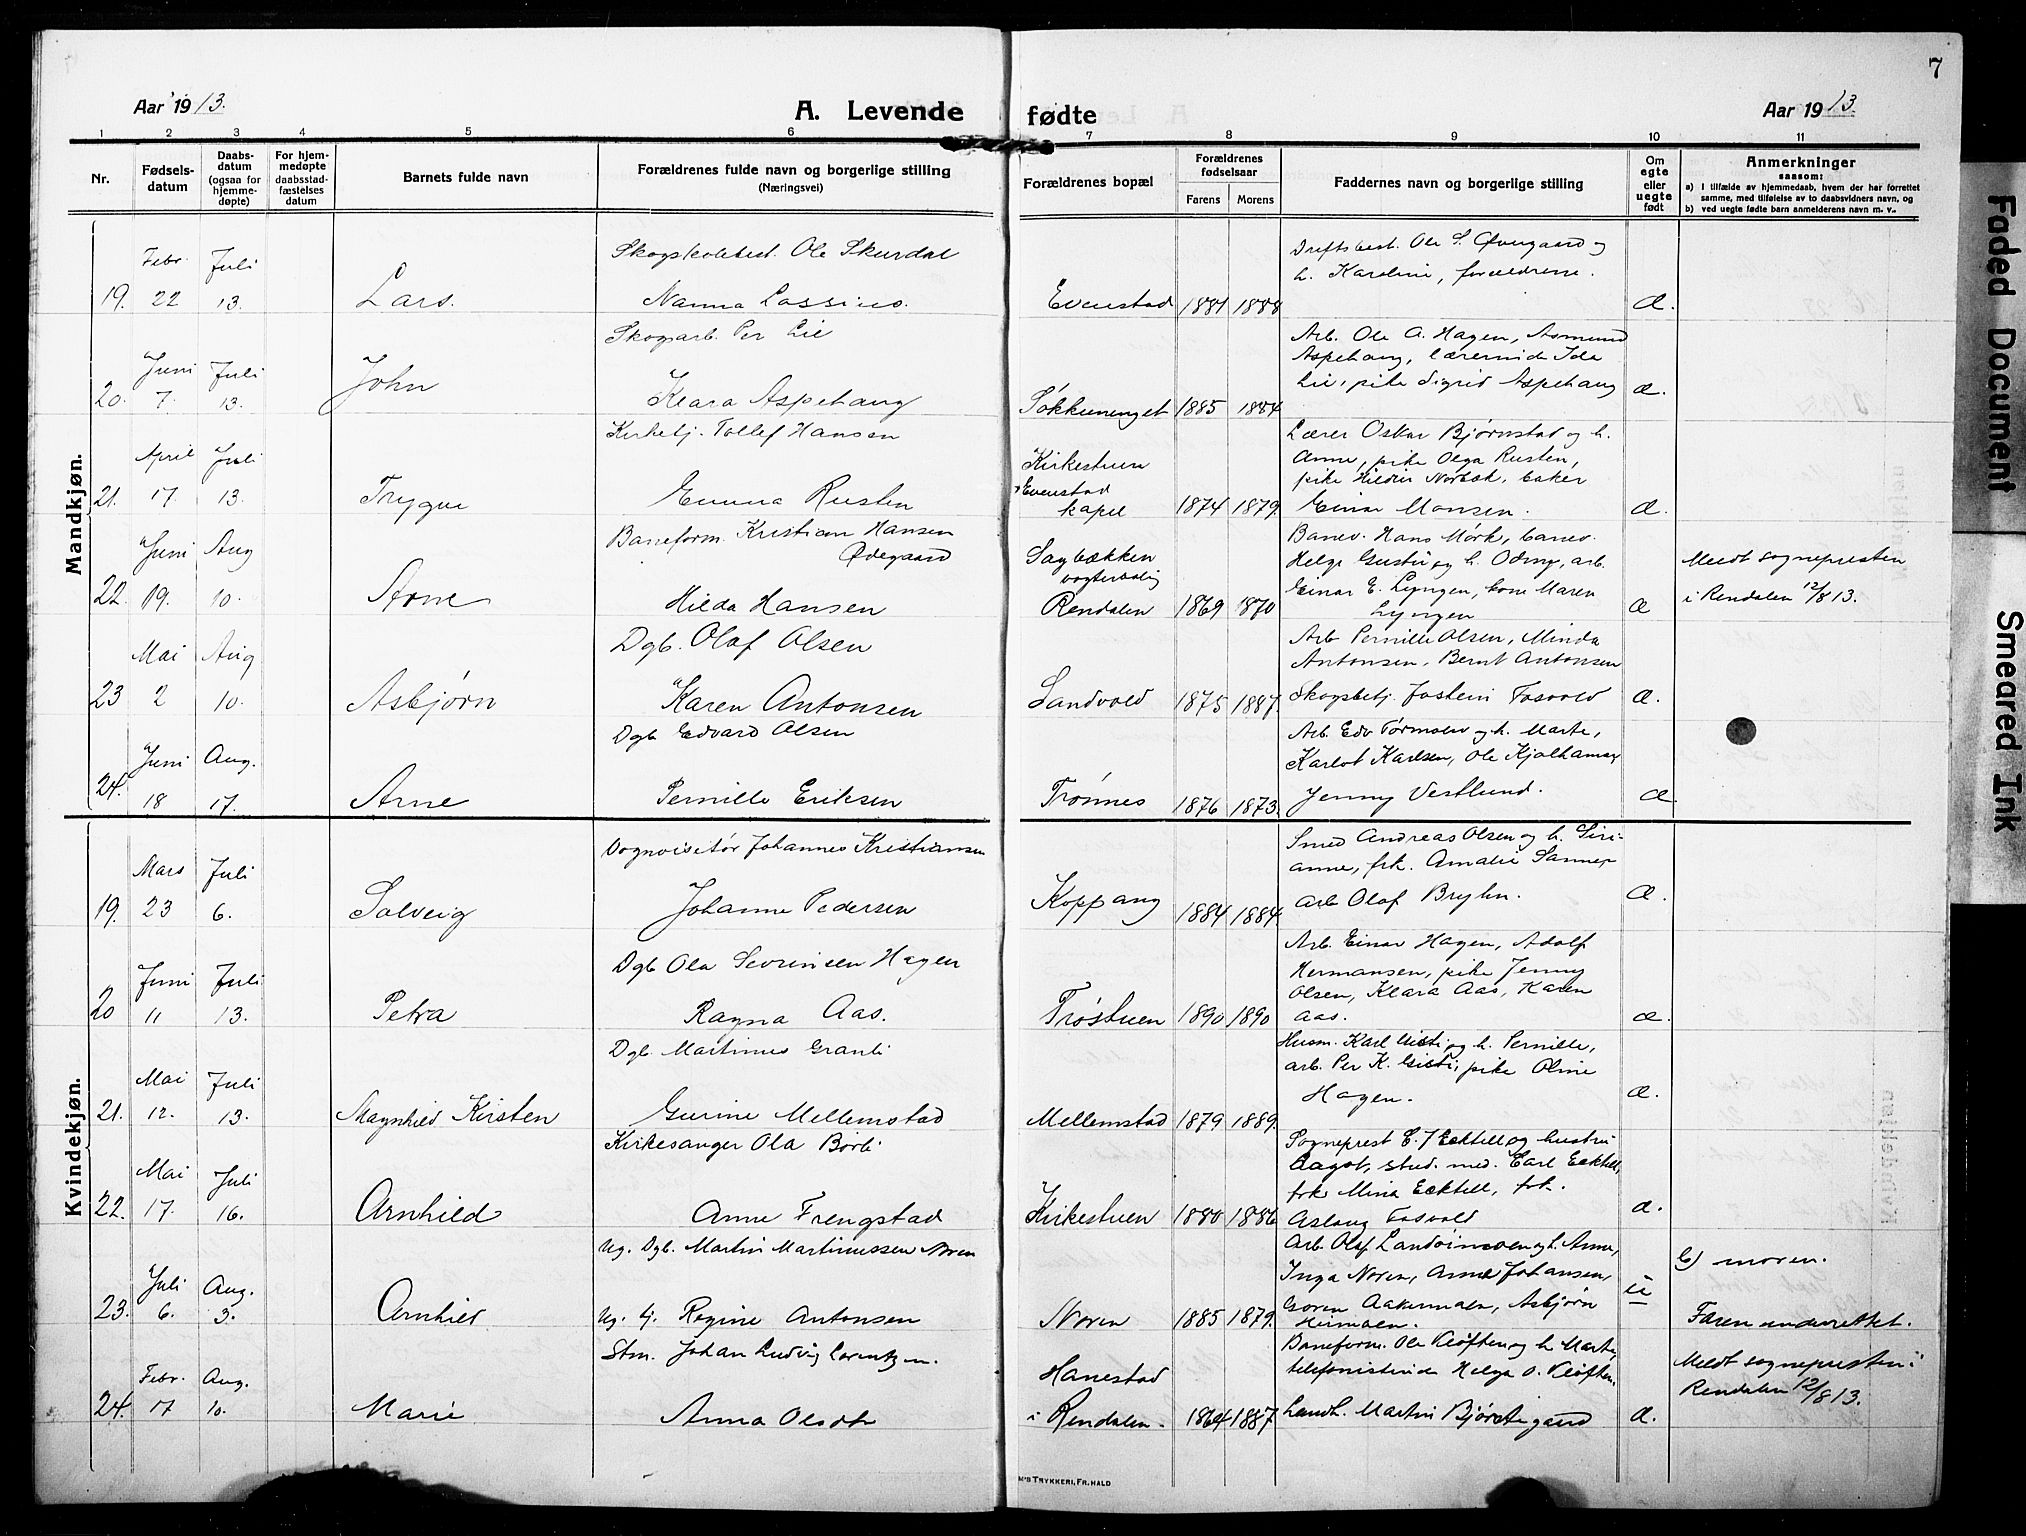 7
Aar 1913.
A. Levende fødte
Aar 1913.
1 2 3 4 5 6 7 8 9 10 11
Nr.
Fødsels-
datum
Daabs-
datum
(ogsaa for
hjemme-
døpte)
For hjem-
medøpte
daabsstad-
fæstelses
datum
Barnets fulde navn
Forældrenes fulde navn og borgerlige stilling
(Næringsvei)
Forældrenes bopæl
Forældrenes
fødselsaar
Farens Morens
Faddernes navn og borgerlige stilling
Om
egte
eller
uegte
født
Anmerkninger
saasom:
a) I tilfælde av hjemmedaab, hvem der har forrettet
samme, med tilføielse av to daabsvidners navn, og
b) ved uegte fødte barn anmelderens navn m. v.
Mandkjøn.
Skogskolebest. Ole Skurdal
Driftsbest. Ole S. Øvergaard og
Febr. Juli
h. Karoline, forældrene.
19. 22 13. Lars. Nanna Lassine. Evenstad 1881 1888 æ.
Skogarb. Per Lie
Arb. Ole A. Hagen, Asmund
Juni Juli
Aspehaug, lærerinde Ida
20. 7. 13. John Klara Aspehaug Søkkunenget 1885 1884 Lie, pike Sigrid Aspehaug æ.
Kirketj. Tollef Hansen
Lærer Oskar Bjørnstad og h.
April Juli
Kirkestuen
Anne, pike Olga Rusten,
Evenstad
pike Hildur Norbæk, baker
21. 17 13. Trygve Emma Rusten kapel 1874 1879. Einar Monsen. æ.
Baneform. Kristian Hansen
Ødegaard
Banev. Hans Mørk, banev.
Juni Aug
Sagbækken
vogterbolig
Helge Gustu og h. Odny, arb.
Meldt sognepresten
22. 19. 10. Arne Hilda Hansen Rendalen 1869 1870 Einar E. Lyngen, kone Maren æ
i Rendalen 12/8 13.
Lyngen
Dgb. Olaf Olsen
Arb Pernille Olsen, Minda
Mai Aug
Antonsen, Bernt Antonsen
23 2 10. Asbjørn Karen Antonsen Landvold 1875 1887. Skogsbetj. Jostein Fosvold æ.
Dgb Edvard Olsen
Arb Edv Tørmoen og h. Marte,
Juni Aug.
Karlot Karlsen, Ole Kjølhamar
24. 18 17. Arne Pernille Eriksen Trønnes 1876 1873. Jenny Vestlund. æ.
Kvindekjøn.
Vognvisitør Johannes Kristiansen
Smed Andreas Olsen og h. Siri-
Mars Juli
anne, frk. Amalie Sanner
19. 23 6. Solveig Johanne Pedersen Koppang 1884 1884. arb Olof Bryhn. æ.
Dgb Ola Sevrinsen Hagen
Arb. Einar Hagen, Adolf
Juni Juli
Hermansen, pike Jenny
Olsen, Klara Aas, Karen
20 11 13. Petra Ragna Aas. Trøstuen 1890 1890 Aas. æ.
Dgb. Martinus Granli
Husm. Karl Gisti og h. Pernille,
Mai Juli
arb. Per K. Gisti, pike Oline
21. 12. 13. Magnhild Kirsten Gurine Mellemstad Mellemstad 1879 1889. Hagen. æ.
Kirkesanger Ola Børli
Sogneprest E. J Ecktell og hustru
Mai Juli
Aagot, stud. med. Carl Ecktell,
frk Mina Ecktell, frk.
22. 17. 16. Arnhild Anne Frengstad Kirkestuen 1880 1886 Aslaug Fosvold æ.
Ug. Dgb. Martin Martinussen Noren
Arb. Olaf Landvimoen og h. Anne,
Juli Aug.
Inga Noren, Anne Johansen,
b) moren.
23. 6. 3. Arnhild Ug. tj. Regine Antonsen Noren 1885 1879. Goren Aakermoen, Asbjørn u
Heimoen.
Faren underrettet.
Stm. Johan Ludvig Lorentzen.
Baneform. Ole Kløften og h Marte,
Febr. Aug.
Hanestad
telefonistinde Helga O. Kløften,
Meldt sognepresten i
24. 17 10. Marie Anna Olsdtr i Rendalen. 1864 1887 Landh. Martin Bjørstegaard æ.
Rendalen 12/8 13.
M's TRYKKERI, FR. HALD
Faded Document
Smeared Ink